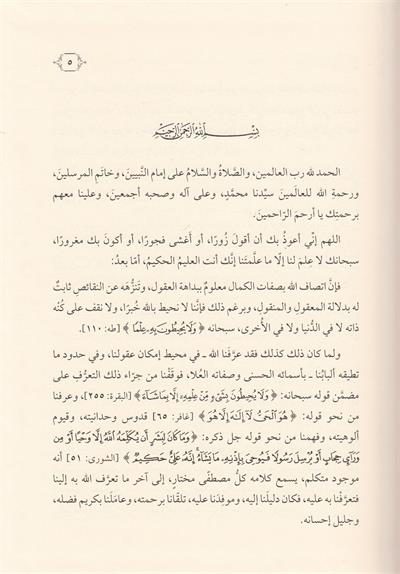 ٥
بسم الله الرحمن الرحيم
الحمد لله رب العالمين، والصَّلاةُ والسَّلامُ على إمام النَّبيين، وخاتَمِ المرسلينَ،
ورحمةِ الله للعالَمينَ سيِّدنا محمَّدٍ، وعلى آله وصحبه أجمعينَ، وعلينا معهم
برحمتِك يا أرحمَ الرَّاحمينَ.
اللهم إنّي أعوذُ بك أن أقولَ زُورًا، أو أغشى فجورًا، أو أكونَ بك مغرورًا،
سبحانك لا عِلمَ لنا إلّا ما علَّمتَنا إنَّك أنت العليمُ الحكيمُ، أمّا بعدُ:
فإنَّ اتصاف الله بصفات الكمال معلومٌ ببداهة العقول، وتنزُّهَه عن النقائص ثابتٌ
له بدلالة المعقول والمنقول، وبرغم ذلك فإنَّنا لا نحيط بالله خُبرًا، ولا نقف على كُنْه
ذاته لا في الدُّنيا ولا في الأُخرى، سبحانه ﴿وَلَا يُحِيطُونَ بِهِ عِلْمًا﴾ [طه: ١١٠].
ولما كان ذلك كذلك فقد عرَّفَنا الله ـ في محيط إمكان عقولنا، وفي حدود ما
تطيقه ألبابُنا ـ بأسمائه الحسنى وصفاته العُلا، فوقَفْنا من جرّاء ذلك التعرُّفِ على
مضمَّن قوله سبحانه: ﴿وَلَا يُحِيطُونَ بِشَيْءٍ مِنْ عِلْمِهِ إِلَّا بِمَا شَاءَ﴾ [البقرة: ٢٥٥]، وعرفنا
من نحو قوله: ﴿هُوَ الْحَيُّ لَا إِلَٰهَ إِلَّا هُوَ﴾ [غافر: ٦٥] قدوس وحدانيته، وقيوم
ألوهيته، وفهمنا من نحو قوله جل ذكره: ﴿وَمَا كَانَ لِبَشَرٍ أَنْ يُكَلِّمَهُ اللَّهُ إِلَّا وَحْيًا أَوْ مِنْ
وَرَآئِ حِجَابٍ أَوْ يُرْسِلَ رَسُولًا فَيُوحِيَ بِإِذْنِهِ مَا يَشَاءُ إِنَّهُ عَلِيٌّ حَكِيمٌ﴾ [الشورى: ٥١] أنه
موجود متكلم، يسمع كلامه كلُّ مصطفًى مختارٍ، إلى آخر ما تعرَّف الله به إلينا
فتعرَّفْنا به عليه، فكان دليلَنا إليه، وموفِدَنا عليه، تلقّانا برحمته، وعامَلَنا بكريم فضله،
وجليل إحسانه.